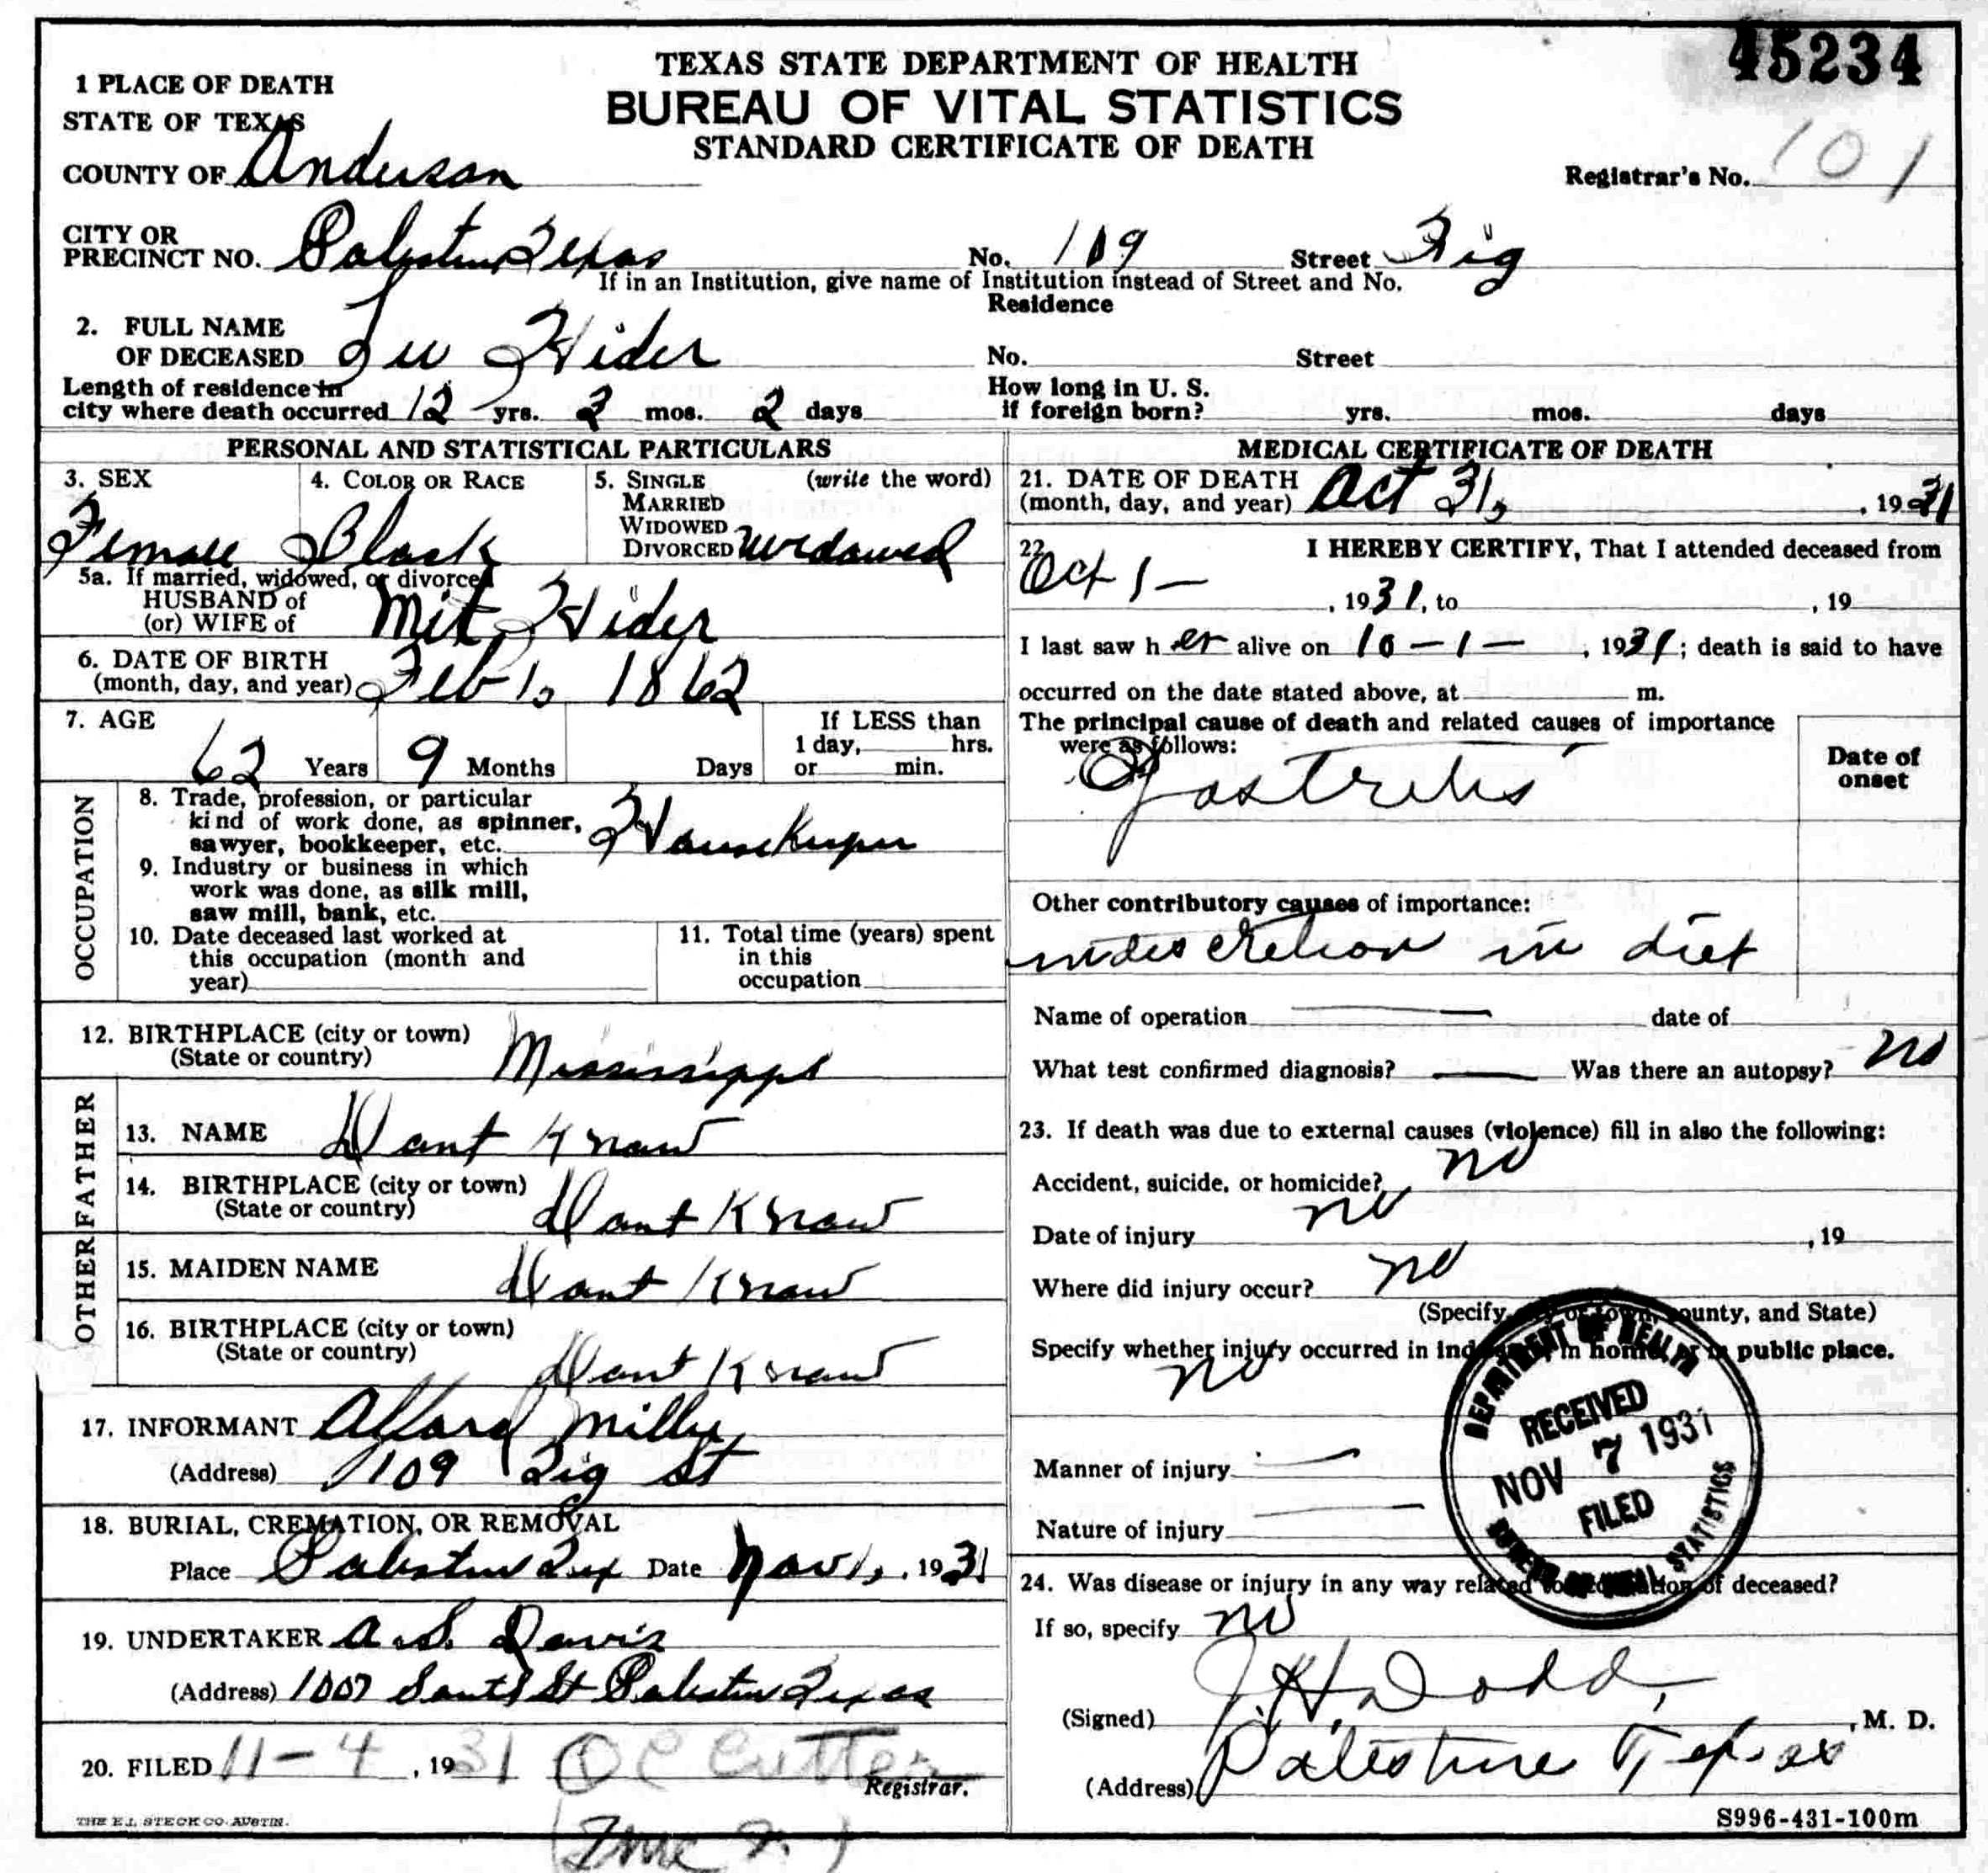 45234
TEXAS STATE DEPARTMENT OF HEALTH
BUREAU OF VITAL STATISTICS
STANDARD CERTIFICATE OF DEATH
1 PLACE OF DEATH
STATE OF TEXAS
COUNTY OF Anderson
Registrar's No. 101
CITY OR
PRECINCT NO. Palestine Texas No. 109 Street Fig
If in an Institution, give name of Institution instead of Street and No.
Residence
2. FULL NAME
OF DECEASED Hider No. Street
Length of residence in
city where death occurred 12 yrs. 3 mos. 2 days
How long in U. S.
if foreign born? yrs. mos. days
PERSONAL AND STATISTICAL PARTICULARS
3. SEX Female
4. COLOR OR RACE Black
5. SINGLE (write the word)
MARRIED
WIDOWED
DIVORCED Widowed
5a. If married, widowed, or divorced
HUSBAND of
(or) WIFE of Mit Hider
6. DATE OF BIRTH
(month, day, and year) Feb 1, 1862
7. AGE 62 Years 9 Months Days
If LESS than
1 day, hrs.
or min.
OCCUPATION
8. Trade, profession, or particular
kind of work done, as spinner,
sawyer, bookkeeper, etc. Housekeeper
9. Industry or business in which
work was done, as silk mill,
saw mill, bank, etc.
10. Date deceased last worked at
this occupation (month and
year)
11. Total time (years) spent
in this
occupation
12. BIRTHPLACE (city or town)
(State or country) Mississippi
FATHER
13. NAME Dont Know
14. BIRTHPLACE (city or town)
(State or country) Dont Know
OTHER
15. MAIDEN NAME Dont Know
16. BIRTHPLACE (city or town)
(State or country) Dont Know
17. INFORMANT Allard
(Address) 109 Fig St
18. BURIAL, CREMATION, OR REMOVAL
Place Palestine Tex Date Nov 1, 1931
19. UNDERTAKER A. S. Davis
(Address) 1007 South St Palestine Texas
20. FILED 11-4, 1931 O C Cutter
Registrar.
THE E.L. STECK CO. AUSTIN.
MEDICAL CERTIFICATE OF DEATH
21. DATE OF DEATH
(month, day, and year) Oct 31, 1931
22 I HEREBY CERTIFY, That I attended deceased from
Oct 1 - , 1931, to , 19
I last saw her alive on 10-1- , 1931; death is said to have
occurred on the date stated above, at m.
The principal cause of death and related causes of importance
were as follows:
Date of
onset
Gastritis
Other contributory causes of importance:
indiscretion in diet
Name of operation date of
What test confirmed diagnosis? Was there an autopsy? no
23. If death was due to external causes (violence) fill in also the following:
Accident, suicide, or homicide? no
Date of injury no , 19
Where did injury occur? no
(Specify city or town, county, and State)
Specify whether injury occurred in industry, in home, or in public place.
no
Manner of injury
Nature of injury
DEPARTMENT OF HEALTH
RECEIVED
NOV 7 1931
FILED
BUREAU OF VITAL STATISTICS
24. Was disease or injury in any way related to occupation of deceased?
If so, specify no
(Signed) J. H. Dodd, M. D.
(Address) Palestine Texas
S996-431-100m